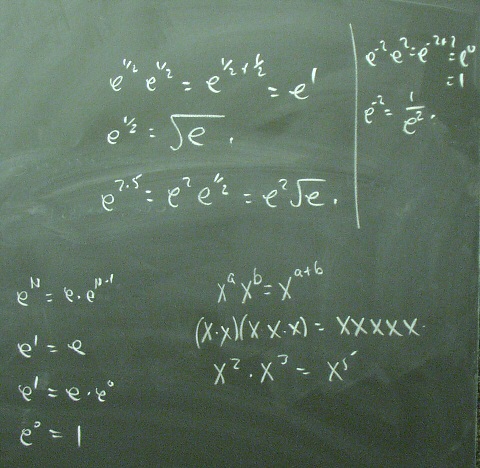 e^{1/2} e^{1/2} = e^{1/2+1/2} = e^1
e^{1/2} = √e.
e^{2.5} = e^2 e^{1/2} = e^2 √e.
e^{-2} e^2 = e^{-2+2} = e^0
= 1
e^{-2} = 1/e^2.
e^N = e·e^{N-1}
e^1 = e
e^1 = e·e^0
e^0 = 1
x^a x^b = x^{a+b}
(x·x)(x x·x) = xxxxx.
x^2 · x^3 = x^5